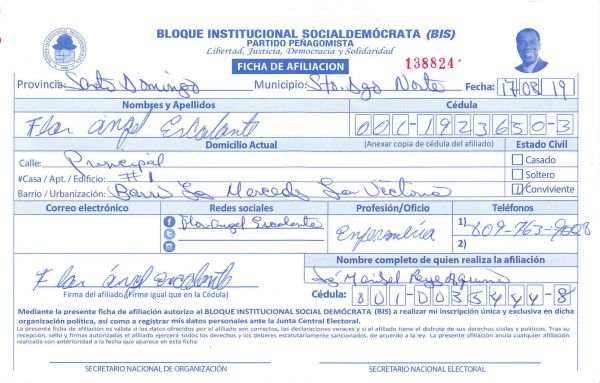 BLOQUE INSTITUCIONAL SOCIALDEMÓCRATA (BIS)
PARTIDO PEÑAGOMISTA
Libertad, Justicia, Democracia y Solidaridad
FICHA DE AFILIACION
138824
Provincia: Santo Domingo Municipio: Sto. Dgo Norte Fecha: 17/08/19
Nombres y Apellidos Cédula
Flor ángel Escalante 001-1923650-3
Domicilio Actual (Anexar copia de cédula del afiliado) Estado Civil
Calle: Principal Casado
#Casa / Apt. / Edificio: #1 Soltero
Barrio / Urbanización: Barrio Las Mercedes La Victoria Conviviente
Correo electrónico Redes sociales Profesión/Oficio Teléfonos
Flor angel Escalante Enfermera 1) 809-763-
2)
Nombre completo de quien realiza la afiliación
Flor ángel escalante Maribel Reye
Firma del afiliado(Firma igual que en la Cédula) Cédula: 001-0035444-8
Mediante la presente ficha de afiliación autorizo al BLOQUE INSTITUCIONAL SOCIAL DEMÓCRATA (BIS) a realizar mi inscripción única y exclusiva en dicha
organización política, así como a registrar mis datos personales ante la Junta Central Electoral.
La presente ficha de afiliación es válida si los datos ofrecidos por el afiliado son correctos, las declaraciones veraces y si el afiliado tiene el disfrute de sus derechos civiles y políticos. Tras su
recepción, sello y firmas autorizadas el afiliado ejercerá todos los derechos y los deberes estatutariamente sancionados, de acuerdo a la ley. La presente afiliación anula cualquier afiliación
realizada con anterioridad a la fecha que aparece en esta ficha.
SECRETARIO NACIONAL DE ORGANIZACIÓN SECRETARIO NACIONAL ELECTORAL